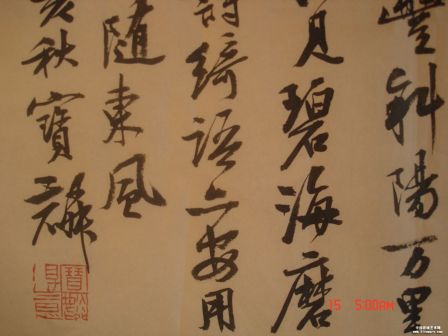 斜陽万里
碧海磨
詩綺語安用
随東風
亥秋寶
15 5:00AM